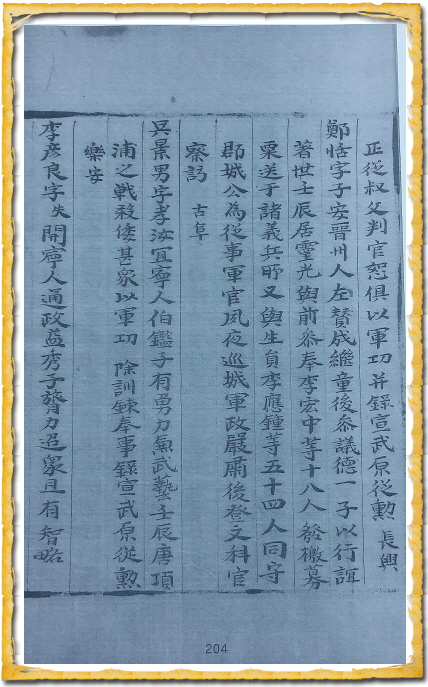 正從叔父判官恕俱以軍功并錄宣武原從勲 長興
鄭恬字子安晉州人左賛成繼童後叅議德一子以行誼
著世壬辰居靈光與前叅奉李宏中等十八人 發檄募
粟送于諸義兵所又與生員李應鍾等五十四人同守
郡城公為從事軍官夙夜巡城軍政嚴肅後登文科官
察訪 古阜
吳景男字孝汝冝寧人伯鑑子有勇力兼武藝壬辰唐項
浦之戰殺倭甚衆以軍功 除訓鍊奉事錄宣武原從勲
樂安
李彦良字失開寧人通政益秀子膂力迢衆且有智略
204